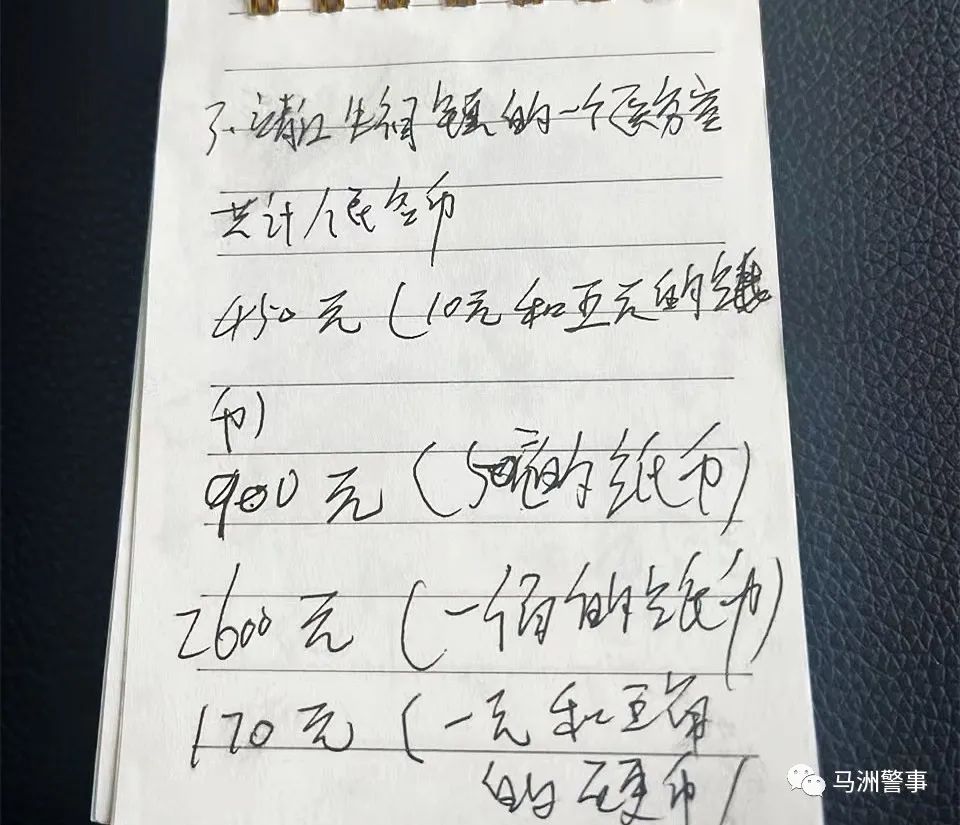 3. 靖江生祠镇的一个医务室
共计人民币
450元(10元和五元的纸
币)
900元(50元的纸币)
2600元(一佰的纸币)
170元(一元和五角
的硬币)
马洲警事